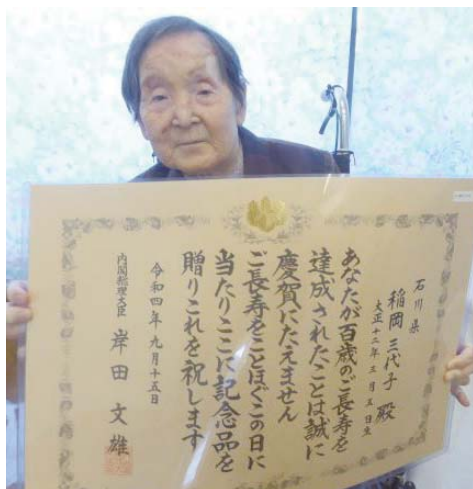 石川県
稲岡三代子 殿
大正十二年五月五日生
あなたが百歳のご長寿を
達成されたことは誠に
慶賀にたえません
ご長寿をことほぐこの日に
当たりここに記念品を
贈りこれを祝します
令和四年九月十五日
内閣総理大臣 岸田文雄